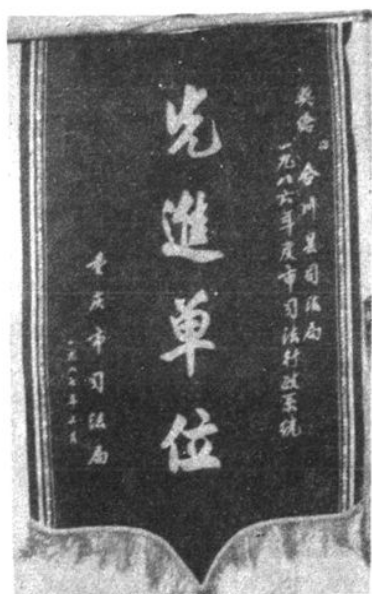 奖给：合川县司法局
一九八六年度市司法行政系统
先進单位
重庆市司法局
一九八七年